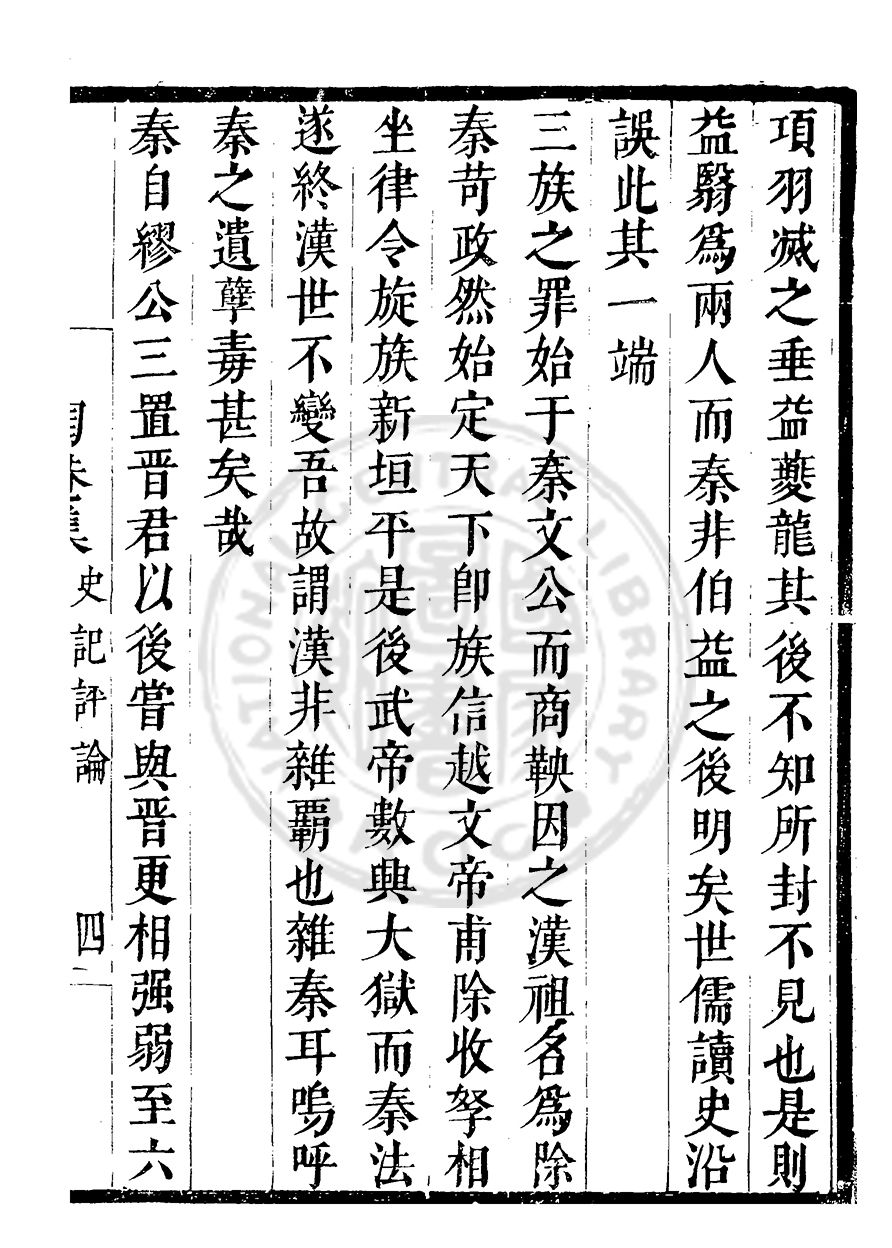 項羽滅之垂益夔龍其後不知所封不見也是則
益翳爲兩人而秦非伯益之後明矣世儒讀史沿
誤此其一端
三族之罪始于秦文公而商鞅因之漢祖名爲除
秦苛政然始定天下卽族信越文帝甫除收孥相
坐律令旋族新垣平是後武帝數興大獄而秦法
遂終漢世不變吾故謂漢非雜霸也雜秦耳嗚呼
秦之遺孽毒甚矣哉
秦自繆公三置晋君以後嘗與晋更相强弱至六
史記評論
四
NATIONAL CENTRAL LIBRARY